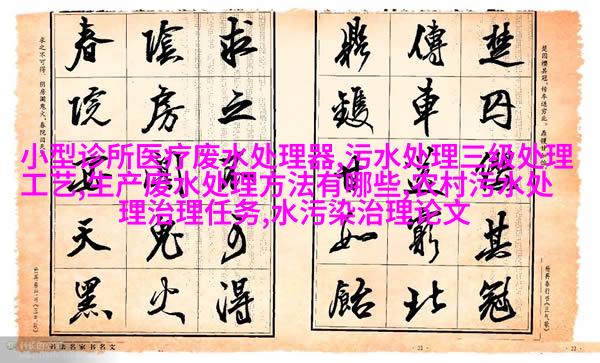 小型诊所医疗废水处理器,污水处理三级处理
工艺,生产废水处理方法有哪些,农村污水处
理治理任务,水污染治理论文
楚囚纓其冠
傳車送窮北
鼎鑊甘如飴
求之不可得
陰房闐鬼火
春院天黑